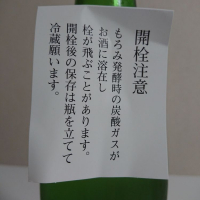 開栓注意
もろみ発酵時の炭酸ガスが
お酒に溶在し
栓が飛ぶことがあります。
開栓後の保存は瓶を立てて
冷蔵願います。